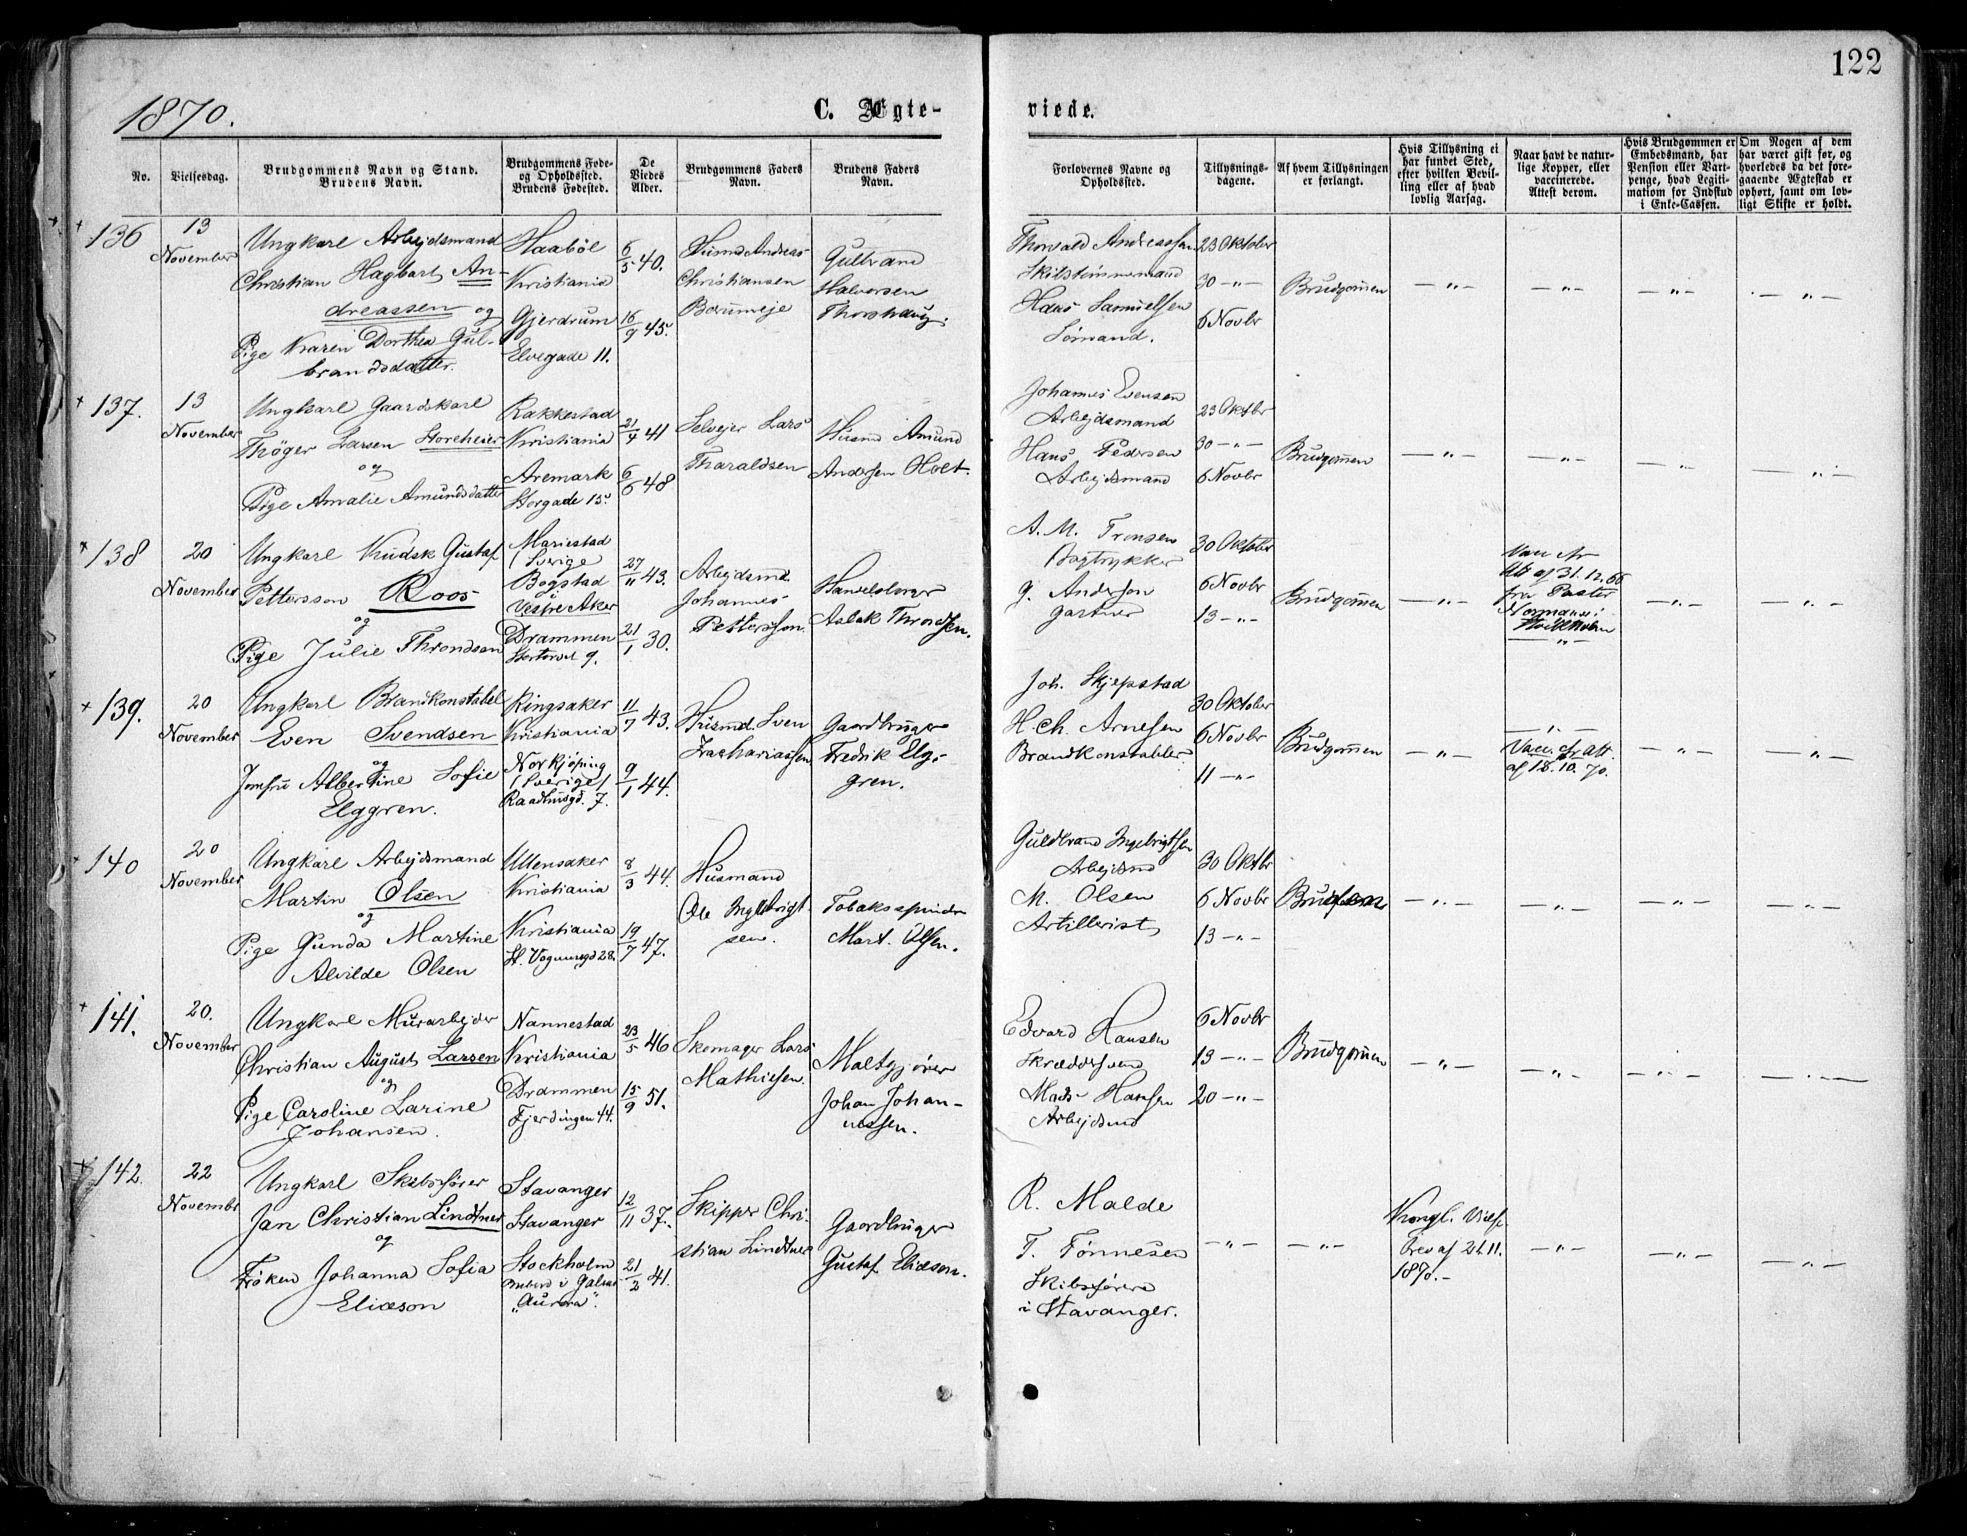 122
1870.
C. Ægte-
viede.
No.
Vielsesdag.
Brudgommens Navn og Stand.
Brudens Navn.
Brudgommens Føde-
og Opholdssted.
Brudens Fødested.
De
Viedes
Alder.
Brudgommens Faders
Navn.
Brudens Faders
Navn.
Forlovernes Navne og
Opholdssted.
Tillysnings-
dagene.
Af hvem Tillysningen
er forlangt.
Hvis Tillysning ei
har fundet Sted,
efter hvilken Bevil-
ling eller af hvad
lovlig Aarsag.
Naar havt de natur-
lige Kopper, eller
vaccinerede.
Attest derom.
Hvis Brudgommen er
Embedsmand, har
Pension eller Vart-
penge, hvad Legiti-
mation for Indskud
i Enke-Cassen.
Om Nogen af dem
har været gift før, og
hvorledes da det fore-
gaaende Ægteskab er
ophørt, samt om lov-
ligt Skifte er holdt.
136
13
November
Ungkarl Arbejdsmand
Christian Hagbart An-
dreassen og
Pige Karen Dorthea Gul-
brandsdatter.
Haabøl
Kristiania
Gjerdrum
Elvegade 11.
6/5 40.
16/9 45.
Husmd Andreas
Christiansen
Gulbrand
Halvorsen
Thorvald Andreassen
Hans Samuelsen
Sømand.
23 Oktober
30 -"-
6 Novbr
Brudgommen
-"-
-"-
-"-
-"-
137.
13
November
Ungkarl Gaardskarl
Thøger Larsen Storeheier
og
Pige Amalie Amundsdatter
Rakkestad
Kristiania
Aremark
Storgade 15.
21/4 41
6/6 48
Selvejer Lars
Tharaldsen
Husmd Amund
Andersen Holt.
Johannes Evensen
Arbejdsmand
Hans Pedersen
Arbejdsmand
23 Oktbr
30 -"-
6 Novbr
Brudgommen
-"-
-"-
-"-
-"-
138
20
November
Ungkarl Kudsk Gustaf
Pettersson Roos
og
Pige Julie Throndsen
Mariestad
Sverige
Bogstad
i
Vestre Aker
Drammen
Stortorvet 9.
27/11 43.
21/1 30.
Arbejdsmd.
Johannes
Pettersson.
Aslak Throndsen.
A. M. Tronsen
Bogtrykker
G. Anderson
Gartner
30 Oktober
6 Novbr
13 -"-
Brudgommen
-"-
Vacc Ar
Att af 31.12.66
fra Pastor
-"-
-"-
-"-
139.
20
November
Ungkarl Brandkonstabel
Even Svendsen
og
Jomfru Albertine Sofie
Elggren.
Ringsaker
Kristiania
Norkjøping
/Sverige/
Raadhusgd. 7.
11/7 43.
9/1 44.
Husmd. Sven
Zachariassen
Gaardbruger
Fredrik Elg-
gren.
Joh. Skjepstad
H. Ch. Arnesen
Brandkonstabler
30 Oktober
6 Novbr
11 -"-
Brudgommen
-"-
-"-
Vacc. Ar att.
af 18.10.70.
-"-
-"-
140
20
November
Ungkarl Arbejdsmand
Martin Olsen
og
Pige Gunda Martine
Alvilde Olsen
Ullensaker
Kristiania
Kristiania
St. Vognmgd 28.
8/3 44.
19/7 47.
Husmand
Ole Ingebrigt-
sen.
Tobaksspinder
Mart. Olsen.
Guldbrand Ingebrigtsen
Arbejdsmd
M. Olsen
Artillerist
30 Oktbr
6 Novbr
13 -"-
-"-
-"-
-"-
-"-
141.
20.
November
Ungkarl Murarbejder
Christian August Larsen
og
Pige Caroline Larine
Johansen.
Nannestad
Kristiania
Drammen
Fjerdingen 44.
23/5 46
15/9 51.
Skomager Lars
Mathiesen.
Maltgjører
Johan Johan-
nesen.
Edvard Hansen
Skræddersvend
Mads Hansen
Arbejdsmd
6 Novbr
13 -"-
20 -"-
Brudgommen
-"-
-"-
-"-
-"-
142.
22
Novembr
Ungkarl Skibsfører
Jan Christian Lindtner
og
Frøken Johanna Sofia
Eliæson
Stavanger
Stavanger
Stockholm
ombord i Galeas
"Aurora".
12/11 37.
21/2 41.
Skipper Chri-
stian Lindtner
Gaardbruger
Gustaf Eliæson.
R. Malde
T. Tønnesen
Skibsførere
i Stavanger.
-"-
-"-
Kongl. Vielse
Brev af 21.11.
1870.-
-"-
-"-
-"-